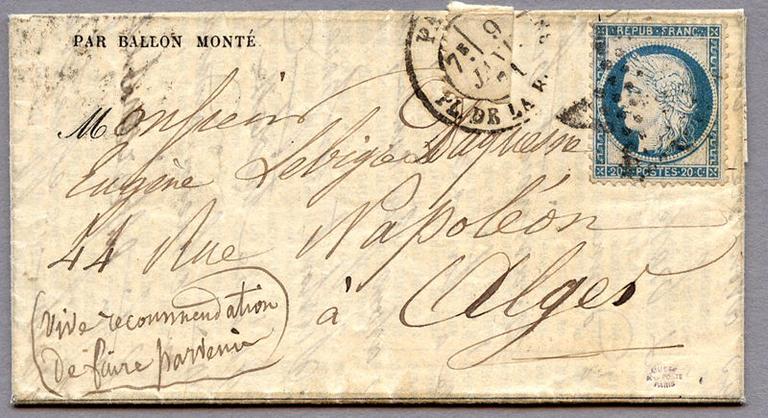 PAR BALLON MONTÉ
PA
7E
9
JAN.
71
PL. DE LA B.
REPUB. FRANC.
20 C. POSTES 20 C.
Monsieur Duquesne
Eugène
44 Rue Napoléon
à Alger
(Vive recommendation
de faire parvenir)
PARIS